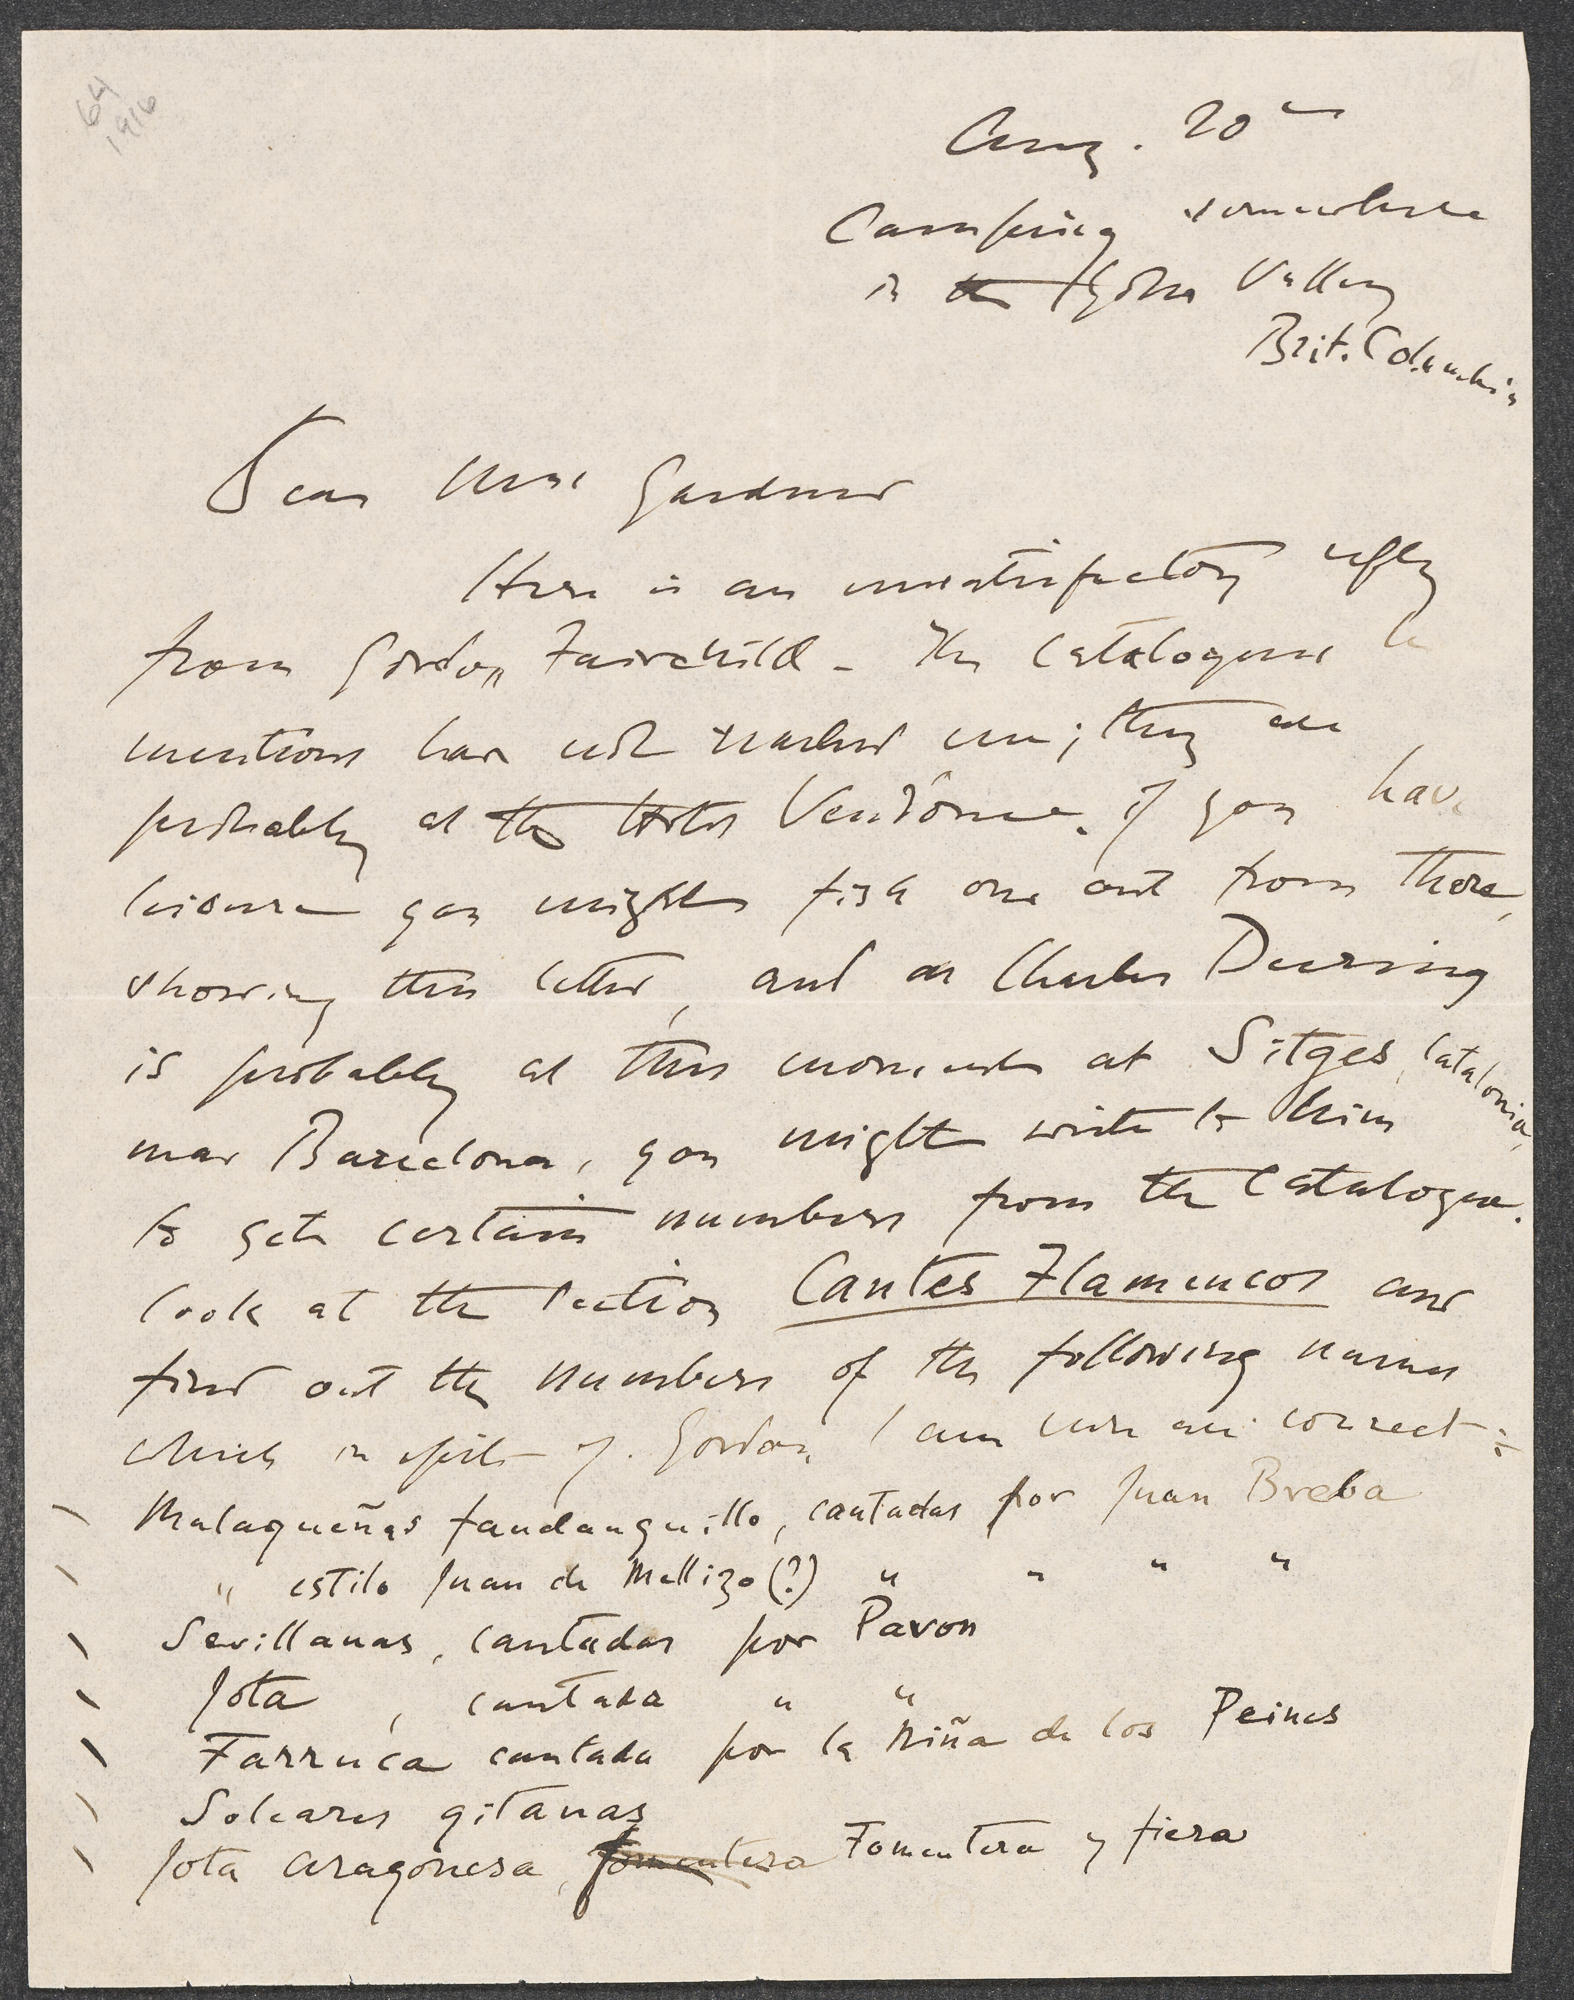 64
1916
Aug. 20th
Camping somewhere
in the Yoho Valley
Brit. Columbia
Dear Mrs Gardner
Here is an unsatisfactory reply
from Gordon Fairchild - The Catalogues he
mentions have not reached me; they are
probably at the Hotel Vendôme. If you have
leisure you might fish one out from there,
showing this letter, and as Charles Deering
is probably at this moment at Sitges, Catalonia,
near Barcelona, you might write to him
to get certain numbers from the Catalogue.
Look at the section Cantes Flamencos and
find out the numbers of the following names
which in spite of Gordon I am sure are correct :
Malagueñas fandanguillo, cantadas por Juan Breba
" estilo Juan de Mellizo (?) " " " "
Sevillanas, cantadas por Pavon
Jota , cantada " "
Farruca cantada por la Niña de los Peines
Soleares gitanas
Jota aragonesa, fomentera Fomentera y fiera